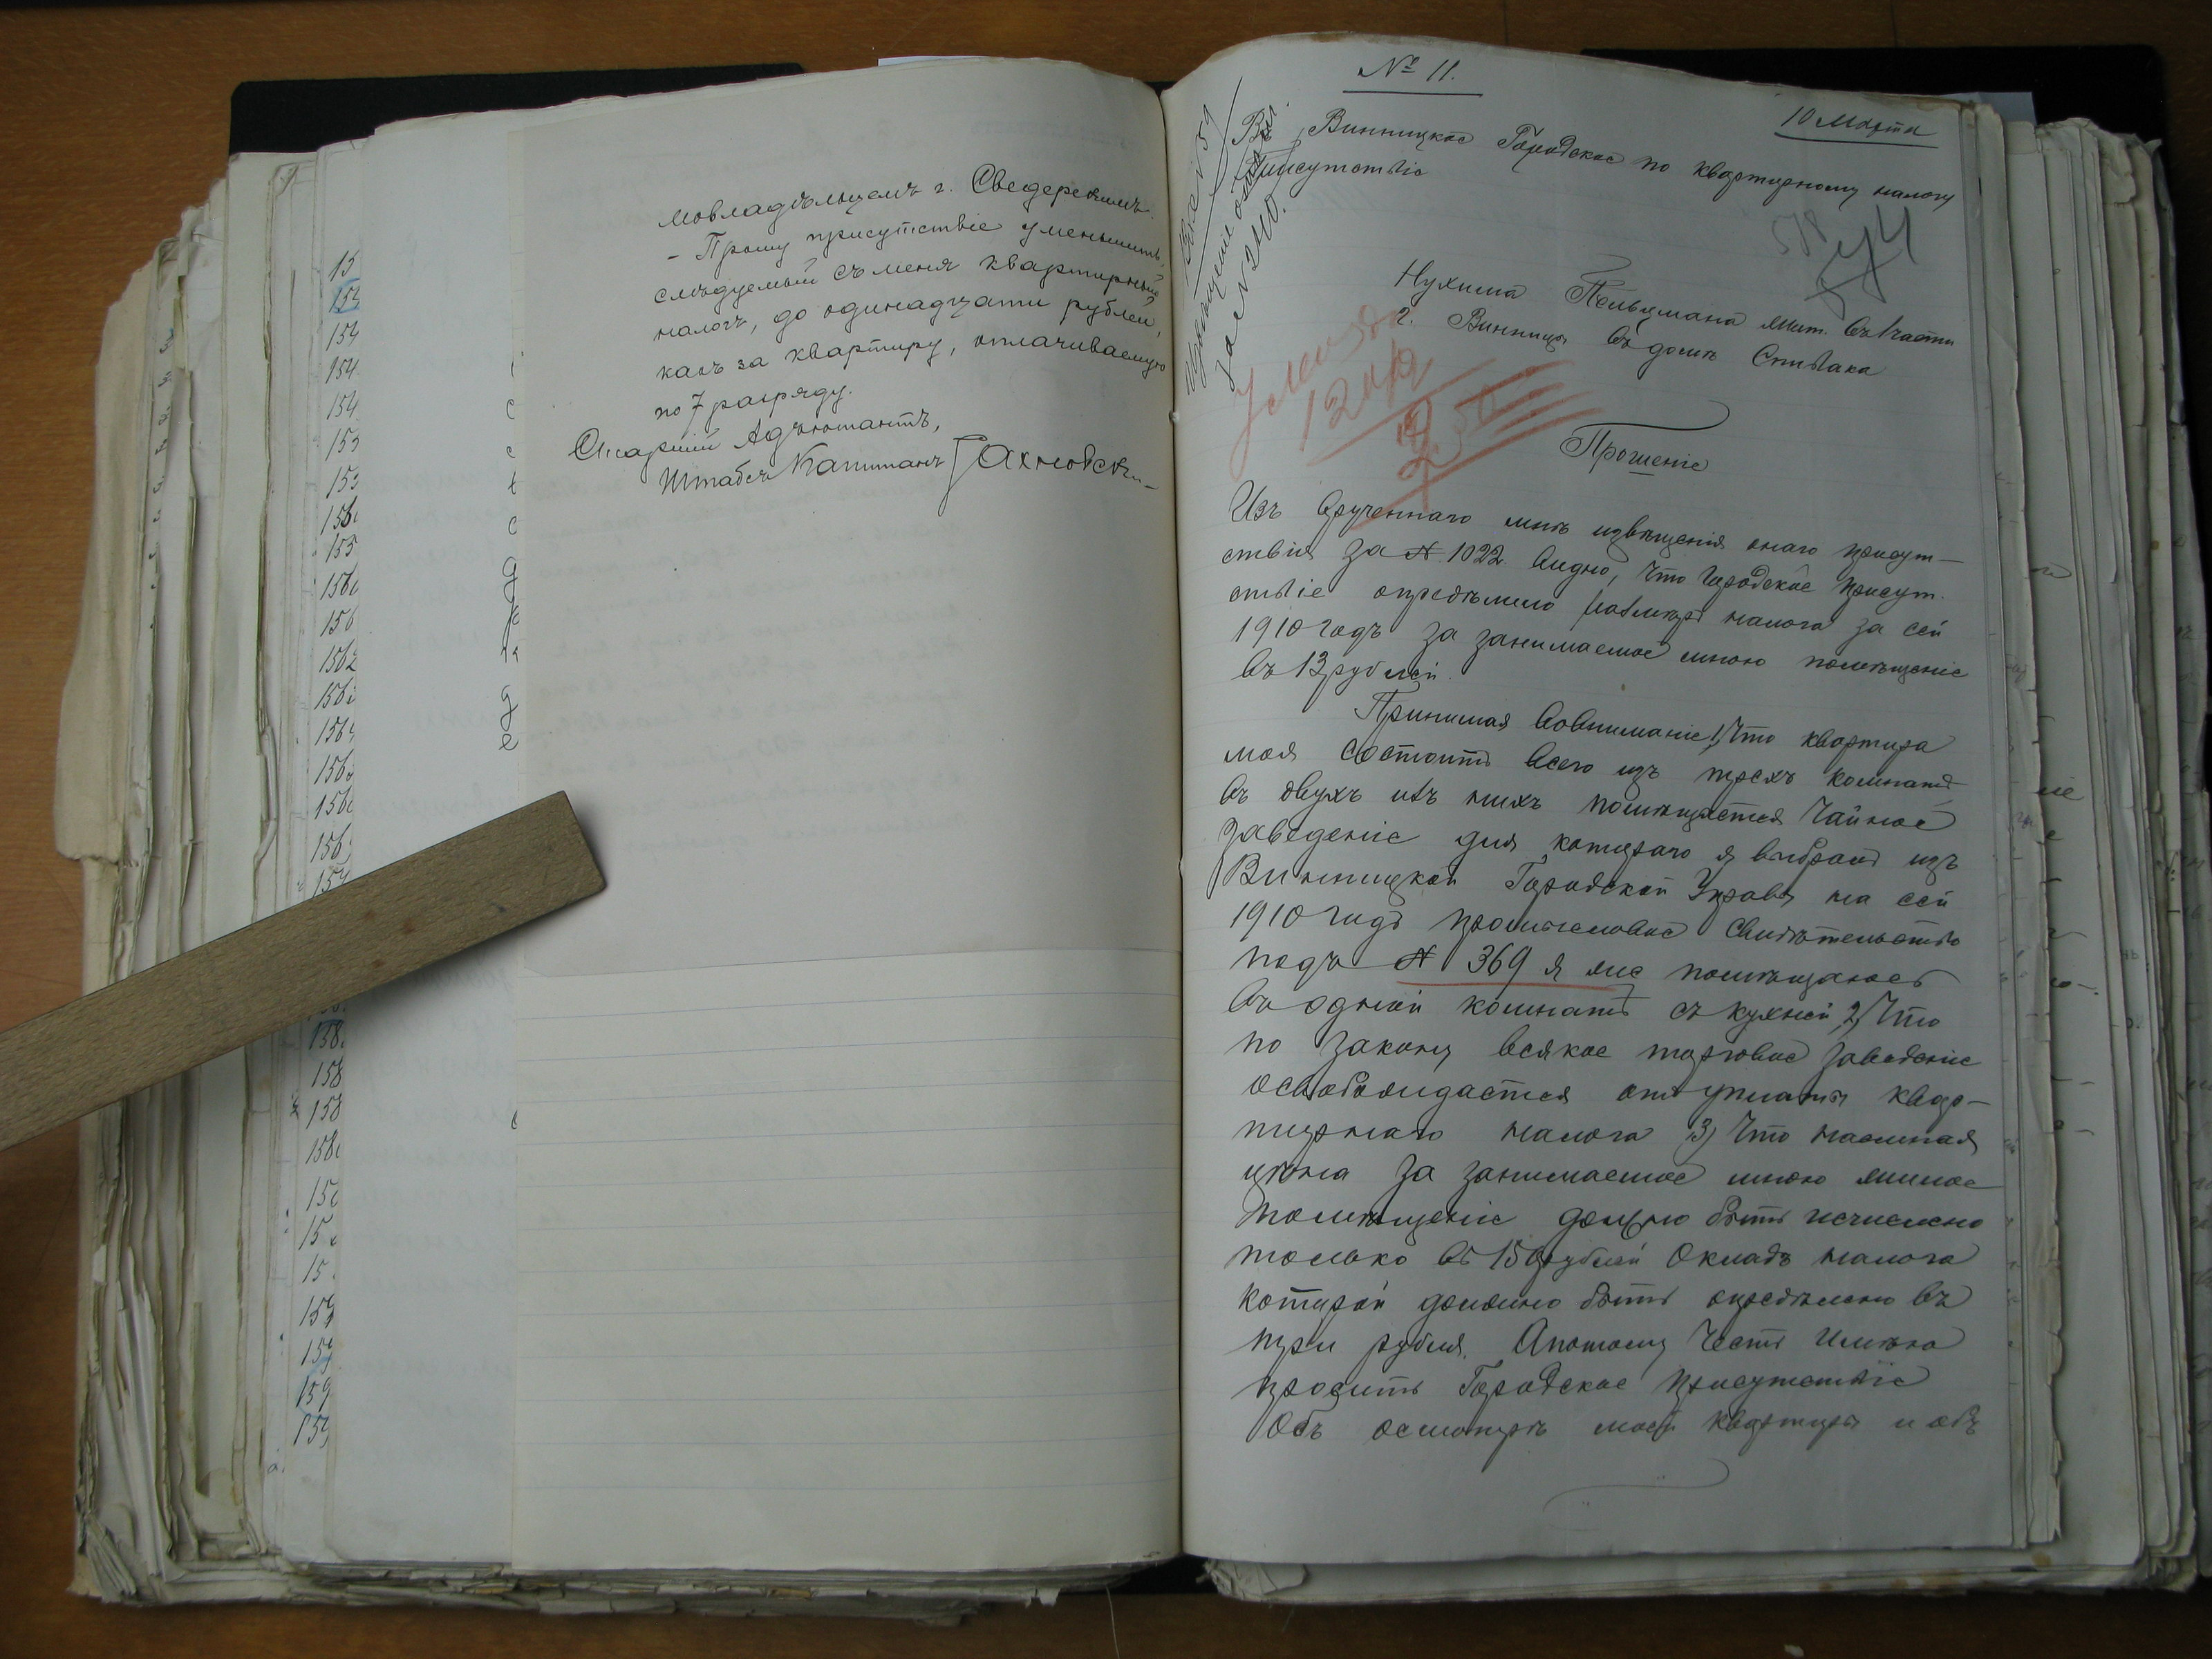 мовладѣльцемъ г. Сведеревичъ.
– Прошу присутствіе уменьшить,
слѣдуемый съ меня квартирный
налогъ, до одинадцати рублей,
какъ за квартиру, оплачиваемую
по 7 разряду.
Старшій Адъютантъ,
Штабсъ Капитанъ
№ 11.
10 Марта
Въ Винницкое Городское по квартирному налогу
Присутствіе
за № 2440.
Нухима Пельцмана жит. въ 1 части
г. Винницы въ домѣ Спивака
Прошеніе
Изъ врученнаго мнѣ извѣщенія онаго присут–
ствія за № 1022 видно, что Городское присут.
ствіе опредѣлило размѣръ налога за сей
1910 годъ за занимаемое мною помѣщеніе
въ 13 рублей.
Принимая вовниманіе 1, Что квартира
моя состоитъ всего изъ трехъ комнатъ
въ двухъ изъ нихъ помѣщается Чайное
заведеніе для котораго я выбралъ изъ
Винницкой Городской Управы на сей
1910 годъ промысловое свидѣтельство
подъ № 369 я же помѣщаюсь
въ одной комнатѣ съ кухней, 2, Что
по закону всякое торговое заведеніе
освобождается отъ уплаты квар–
тирнаго налога 3, Что наемная
цѣна за занимаемое мною жилое
помѣщеніе должно быть исчислено
только въ 150 рублей Окладъ налога
которой должно быть опредѣлено въ
три рубля. Апотому Честь Имѣю
просить Городское присутствіе
Объ осмотрѣ моей квартиры и объ